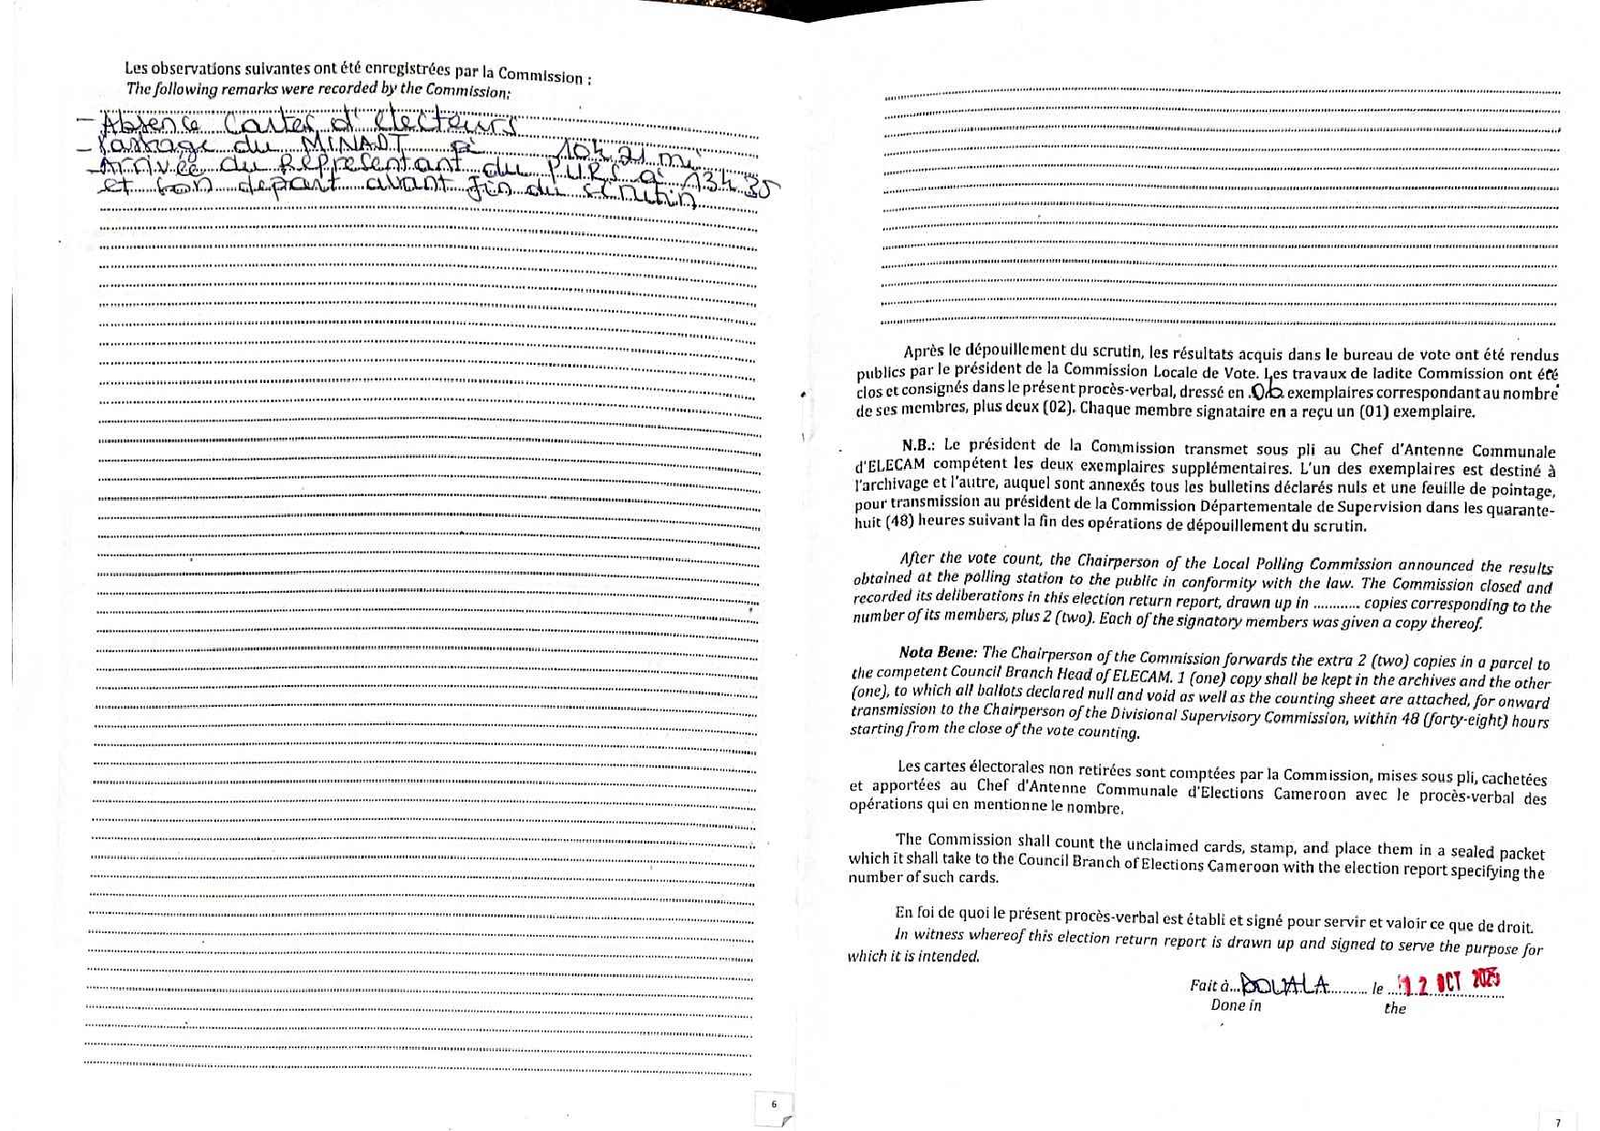 Les observations suivantes ont été enregistrées par la Commission :
The following remarks were recorded by the Commission:
- Absence Cartes d'électeurs
- Passage du MINADT à 10h 21 mi
- Arrivée du Représentant du PURS à 13h35
et son départ avant fin du scrutin
6
Après le dépouillement du scrutin, les résultats acquis dans le bureau de vote ont été rendus
publics par le président de la Commission Locale de Vote. Les travaux de ladite Commission ont été
clos et consignés dans le présent procès-verbal, dressé en 06 exemplaires correspondant au nombre
de ses membres, plus deux (02). Chaque membre signataire en a reçu un (01) exemplaire.
N.B.: Le président de la Commission transmet sous pli au Chef d'Antenne Communale
d'ELECAM compétent les deux exemplaires supplémentaires. L'un des exemplaires est destiné à
l'archivage et l'autre, auquel sont annexés tous les bulletins déclarés nuls et une feuille de pointage,
pour transmission au président de la Commission Départementale de Supervision dans les quarante-
huit (48) heures suivant la fin des opérations de dépouillement du scrutin.
After the vote count, the Chairperson of the Local Polling Commission announced the results
obtained at the polling station to the public in conformity with the law. The Commission closed and
recorded its deliberations in this election return report, drawn up in ............ copies corresponding to the
number of its members, plus 2 (two). Each of the signatory members was given a copy thereof.
Nota Bene: The Chairperson of the Commission forwards the extra 2 (two) copies in a parcel to
the competent Council Branch Head of ELECAM. 1 (one) copy shall be kept in the archives and the other
(one), to which all ballots declared null and void as well as the counting sheet are attached, for onward
transmission to the Chairperson of the Divisional Supervisory Commission, within 48 (forty-eight) hours
starting from the close of the vote counting.
Les cartes électorales non retirées sont comptées par la Commission, mises sous pli, cachetées
et apportées au Chef d'Antenne Communale d'Elections Cameroon avec le procès-verbal des
opérations qui en mentionne le nombre.
The Commission shall count the unclaimed cards, stamp, and place them in a sealed packet
which it shall take to the Council Branch of Elections Cameroon with the election report specifying the
number of such cards.
En foi de quoi le présent procès-verbal est établi et signé pour servir et valoir ce que de droit.
In witness whereof this election return report is drawn up and signed to serve the purpose for
which it is intended.
Fait à...DOUALA.......... le ...12 OCT 2025
Done in the
7